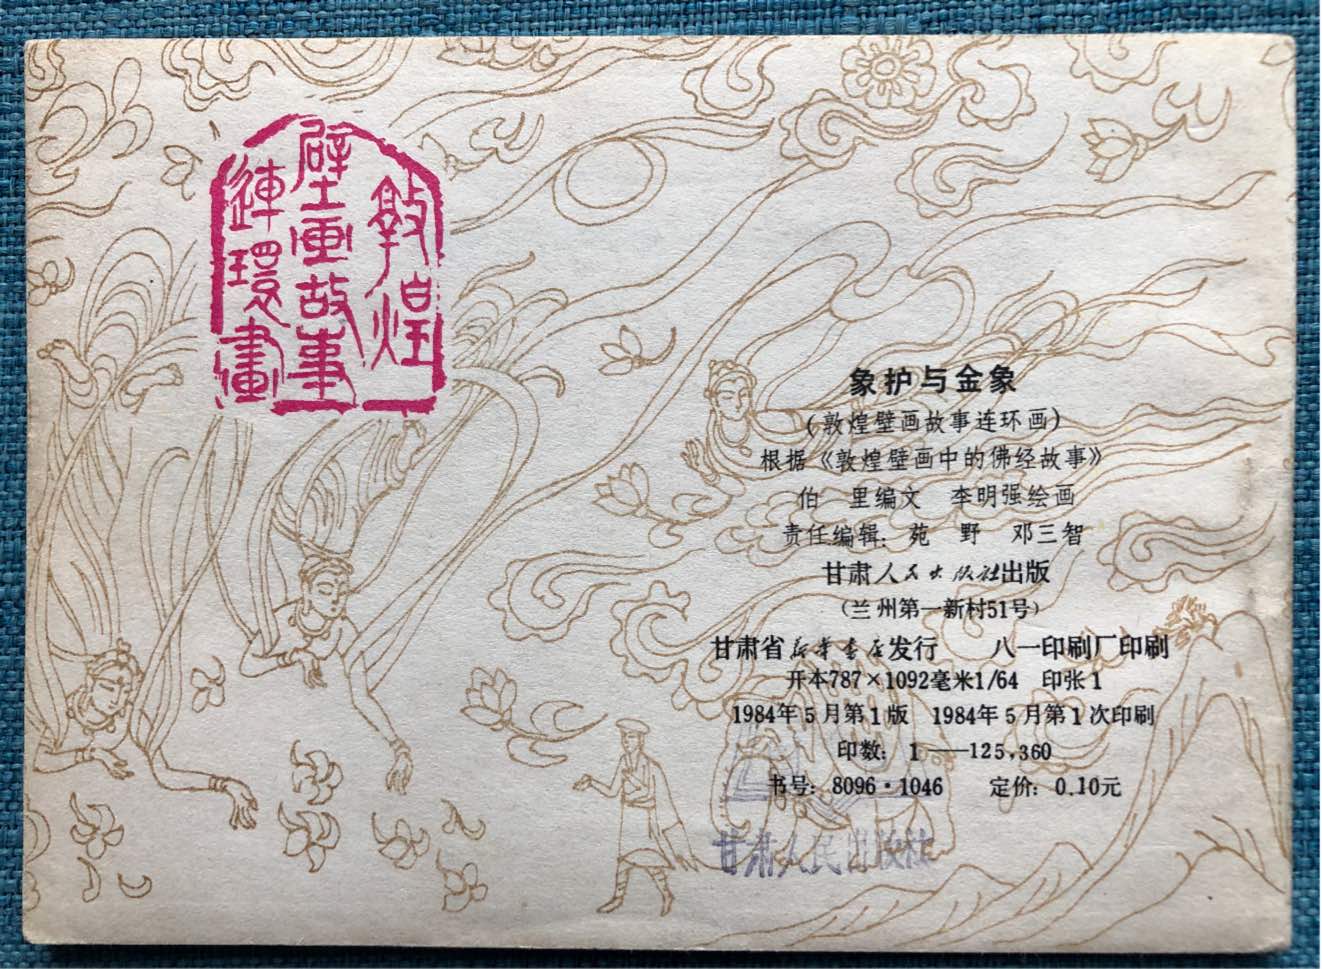 敦煌
壁画故事
連環畫
象护与金象
(敦煌壁画故事连环画)
根据《敦煌壁画中的佛经故事》
伯　里编文　李明强绘画
责任编辑：苑　野　邓三智
甘肃人民出版社出版
(兰州第一新村51号)
甘肃省新华书店发行　　八一印刷厂印刷
开本787×1092毫米1/64　印张1
1984年5月第1版　1984年5月第1次印刷
印数：1——125,360
书号：8096·1046　　定价：0.10元
甘肃人民出版社